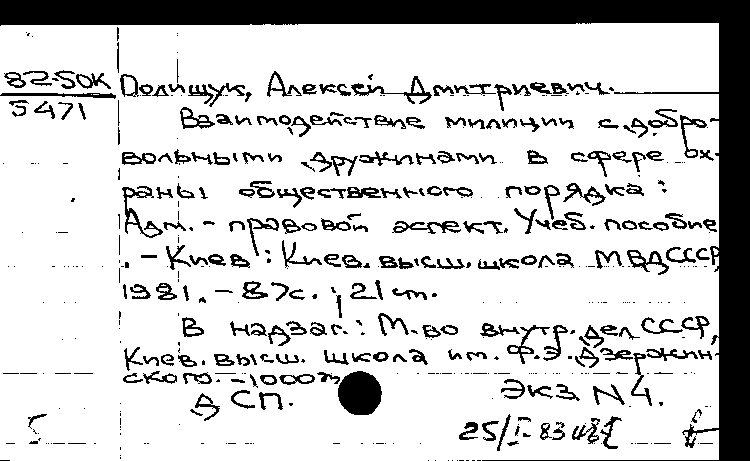 82-50К Полищук, Алексей Дмитриевич.
5471
Взаимодействие милиции с добро-
вольными дружинами в сфере ох-
раны общественного порядка:
Адм.-правовой аспект. Учеб. пособие
. - Киев: Киев. высш. школа МВД СССР,
1981. - 87с.; 21 см.
В надзаг.: М-во внутр. дел СССР,
Киев. высш. школа им. Ф.Э. Дзержин-
ского. - 1000
ДСП. Экз. N4.
25/I-83